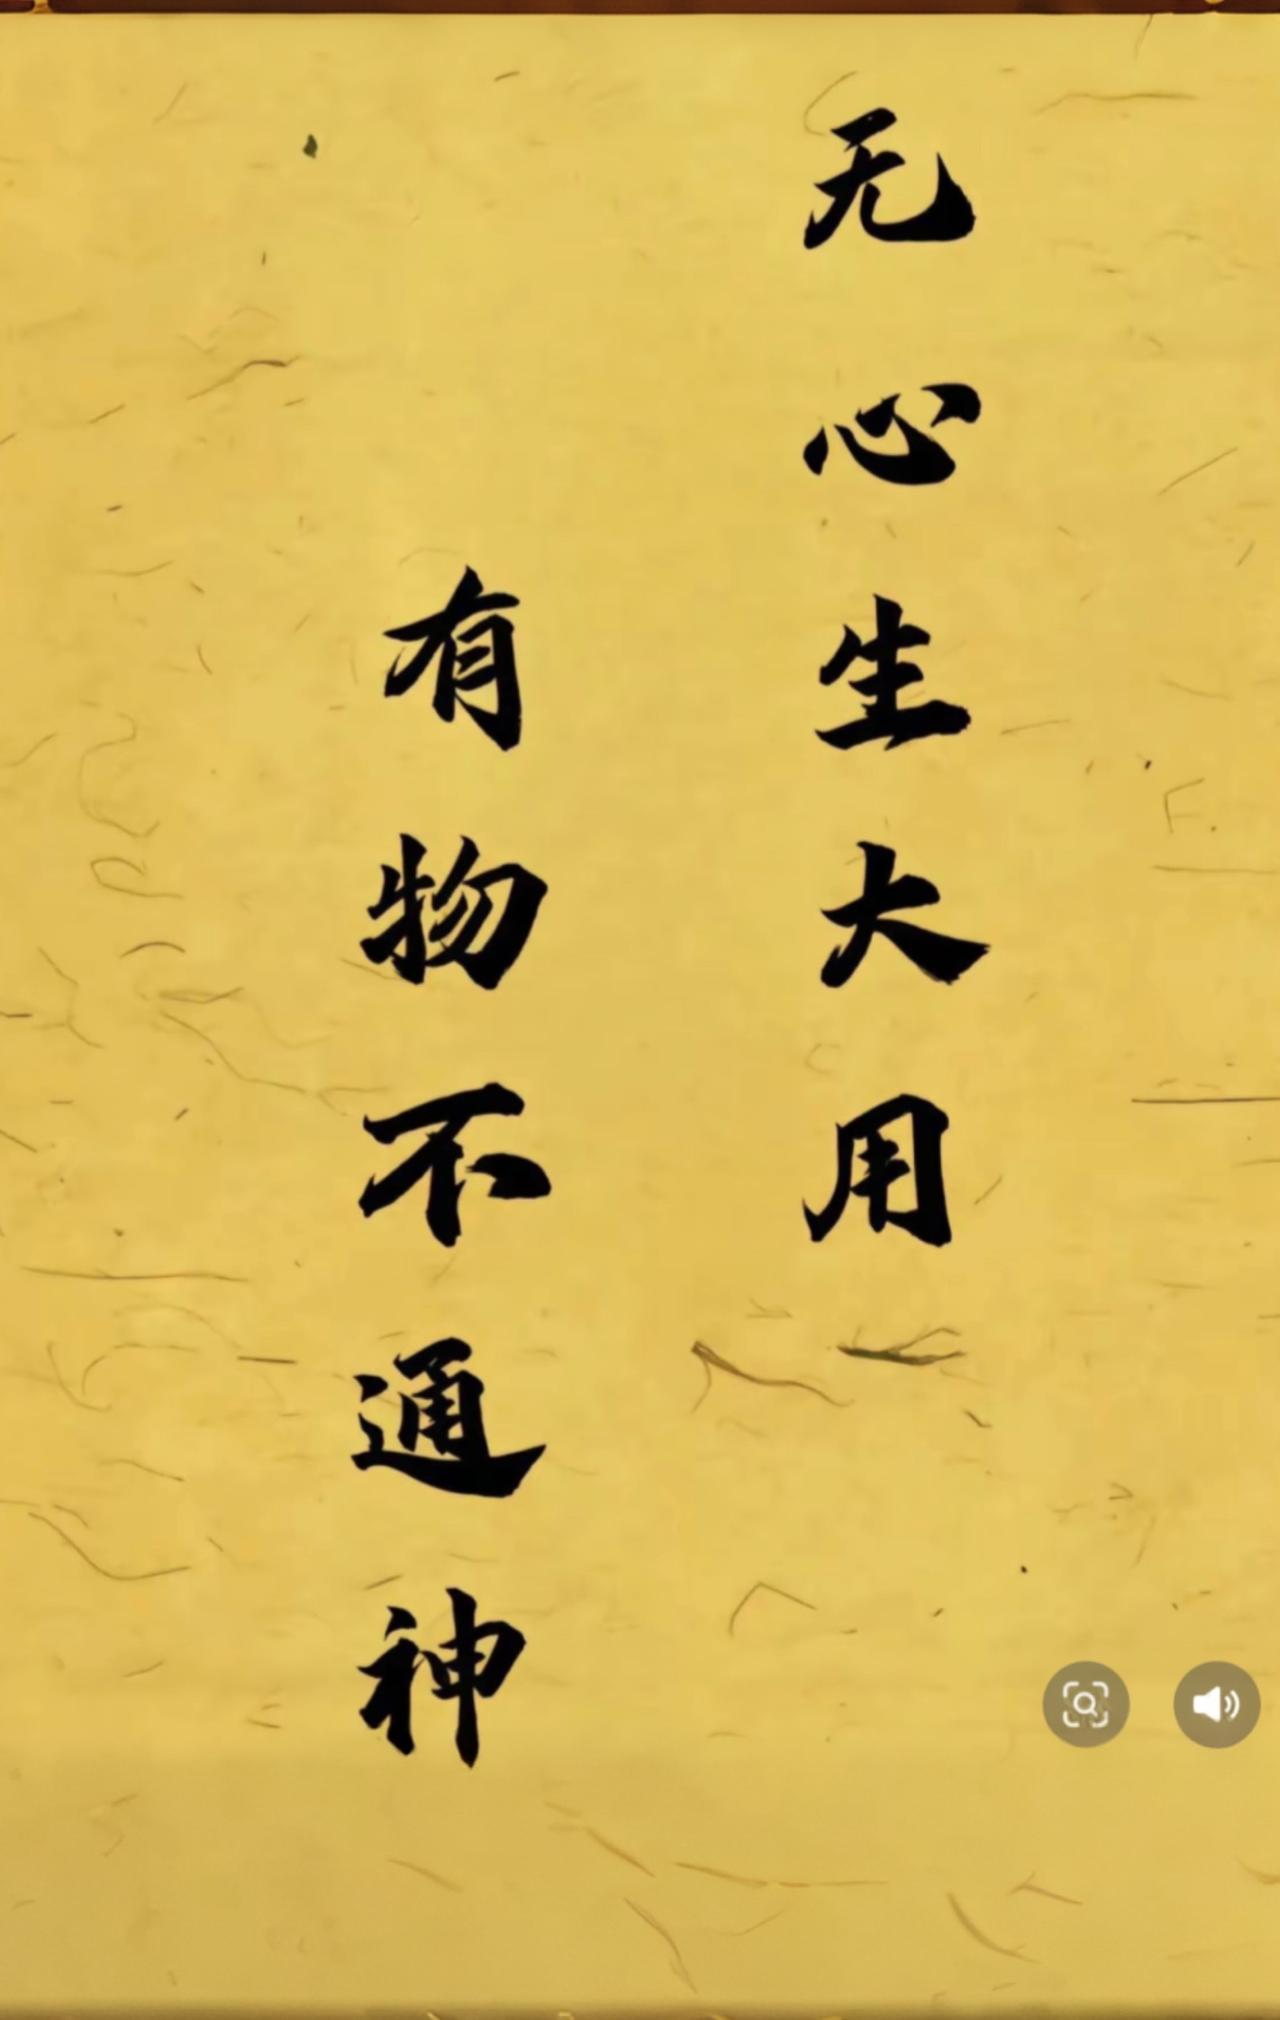 无心生大用
有物不通神